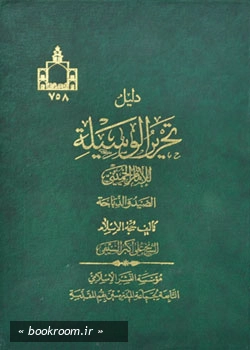 ٧٥٨
دليل
تحرير الوسيلة
للإمام الخميني
الصيد والذباحة
تأليف حجة الإسلام
الشيخ علي أكبر السيفي
مؤسسة النشر الإسلامي
التابعة لجماعة المدرسين بقم المقدسة
« bookroom.ir »